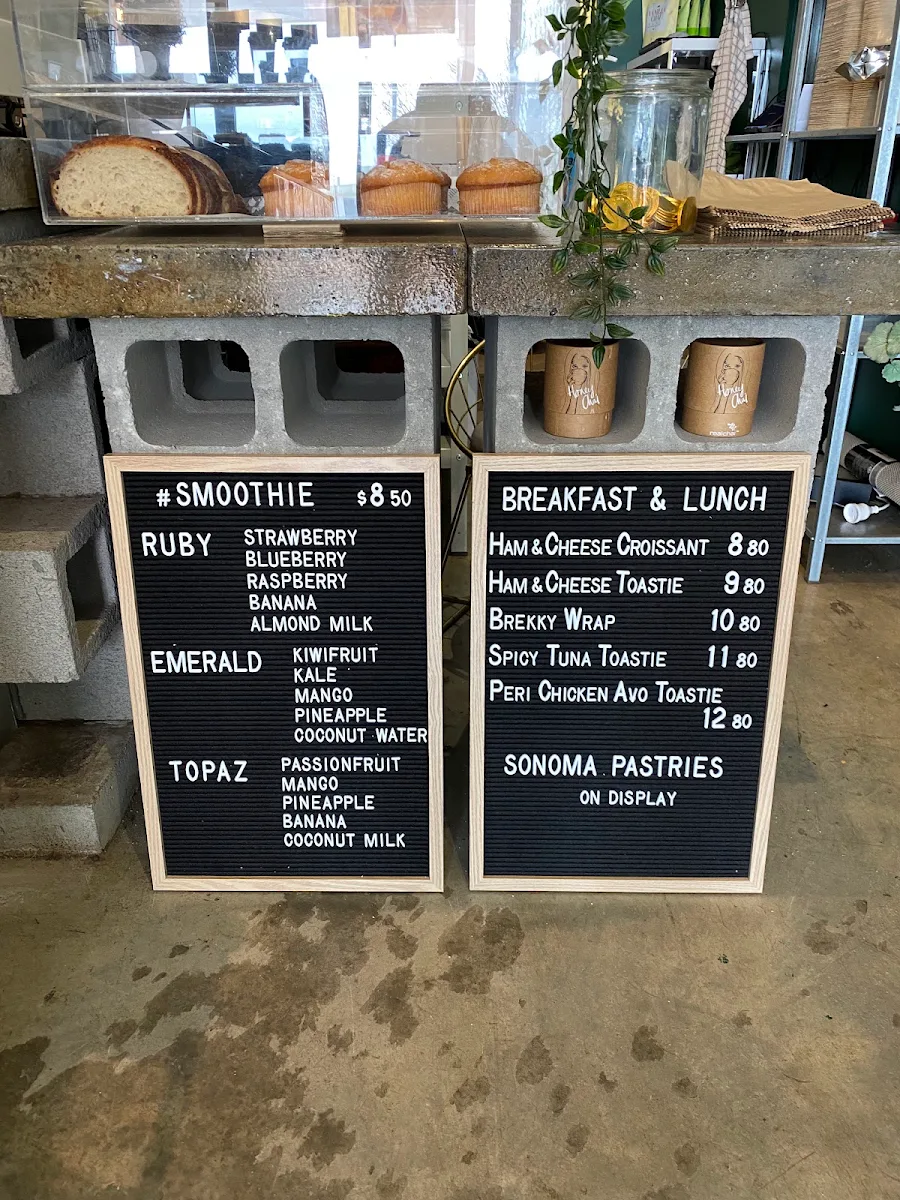 Honey Chai
Honey Chai
realchai
#SMOOTHIE $8 50
RUBY STRAWBERRY
BLUEBERRY
RASPBERRY
BANANA
ALMOND MILK
EMERALD KIWIFRUIT
KALE
MANGO
PINEAPPLE
COCONUT WATER
TOPAZ PASSIONFRUIT
MANGO
PINEAPPLE
BANANA
COCONUT MILK
BREAKFAST & LUNCH
HAM & CHEESE CROISSANT 8 80
HAM & CHEESE TOASTIE 9 80
BREKKY WRAP 10 80
SPICY TUNA TOASTIE 11 80
PERI CHICKEN AVO TOASTIE
12 80
SONOMA PASTRIES
ON DISPLAY